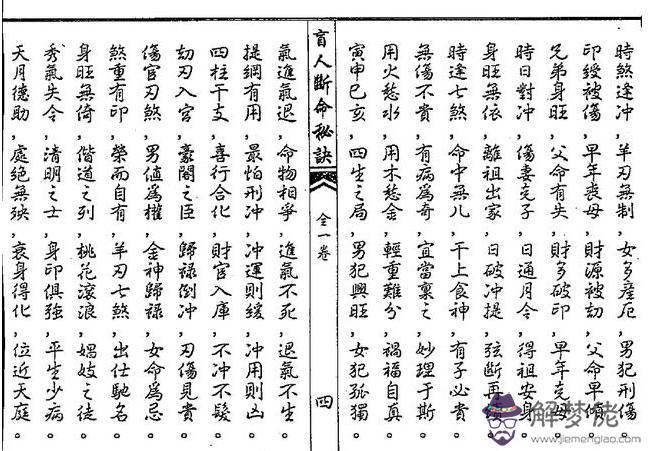 時煞逢沖，羊刃無制，女多產厄，男犯刑傷。
印綬被傷，早年喪母，財源被劫，父命早傾。
兄弟身旺，父命有失，財多破印，早年剋母。
時日對沖，傷妻克子，日通月令，得祖安身。
身旺無依，離祖出家，日破沖提，弦斷再
時逢七煞，命中無兒，干上食神，有子必貴。
無傷不貴，有病為奇，宜當稟之，妙理于斯。
用火愁水，用木愁金，輕重難分，禍福自真。
寅申巳亥，四生之局，男犯興旺，女犯孤獨。
盲人斷命秘訣 全一卷 四
氣進氣退，命物相爭，進氣不死，退氣不生。
提綱有用，最怕刑沖，沖運則緩，沖用則凶。
四柱干支，喜行合化，財官入庫，不沖不發。
劫刃入宮，豪閣之臣，歸祿倒沖，刃傷見貴。
傷官刃煞，男值為權，金神歸祿，女命為忌。
煞重有印，榮而自有，羊刃七煞，出仕馳名。
身旺無倚，偕道之列，桃花滾浪，娼妓之徒。
秀氣失令，清明之士，身印俱強，平生少病。
天月德助，處絕無殃，衰身得化，位近天庭。
解梦佬
www.jiemenglao.com